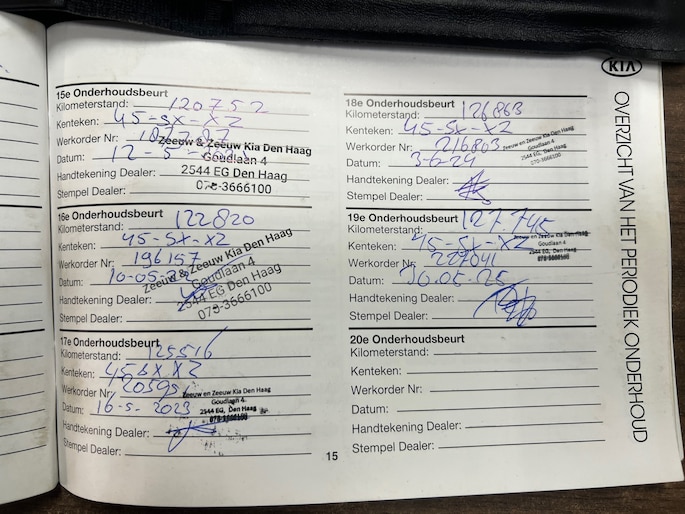 KIA
OVERZICHT VAN HET PERIODIEK ONDERHOUD
15e Onderhoudsbeurt
Kilometerstand: 120752
Kenteken: 45-SX-XZ
Werkorder Nr:
Datum: 12-5
Handtekening Dealer:
Stempel Dealer:
Zeeuw & Zeeuw Kia Den Haag
Goudlaan 4
2544 EG Den Haag
070-3666100
16e Onderhoudsbeurt
Kilometerstand: 122820
Kenteken: 45-SX-XZ
Werkorder Nr: 196157
Datum: 10-05-
Handtekening Dealer:
Stempel Dealer:
Zeeuw & Zeeuw Kia Den Haag
Goudlaan 4
2544 EG Den Haag
070-3666100
17e Onderhoudsbeurt
Kilometerstand: 125516
Kenteken: 45SXXZ
Werkorder Nr:
Datum: 16-5-2023
Handtekening Dealer:
Stempel Dealer:
Zeeuw en Zeeuw Kia Den Haag
Goudlaan 4
2544 EG, Den Haag
070-3666100
18e Onderhoudsbeurt
Kilometerstand: 126863
Kenteken: 45-SX-XZ
Werkorder Nr: 216803
Datum: 3-6-24
Handtekening Dealer:
Stempel Dealer:
Zeeuw en Zeeuw Kia Den Haag
Goudlaan 4
2544 EG, Den Haag
070-3666100
19e Onderhoudsbeurt
Kilometerstand: 127.745
Kenteken: 45-SX-XZ
Werkorder Nr:
Datum: 16.05.25
Handtekening Dealer:
Stempel Dealer:
Zeeuw en Zeeuw Kia Den Haag
Goudlaan 4
2544 EG, Den Haag
070-3666100
20e Onderhoudsbeurt
Kilometerstand:
Kenteken:
Werkorder Nr:
Datum:
Handtekening Dealer:
Stempel Dealer:
15